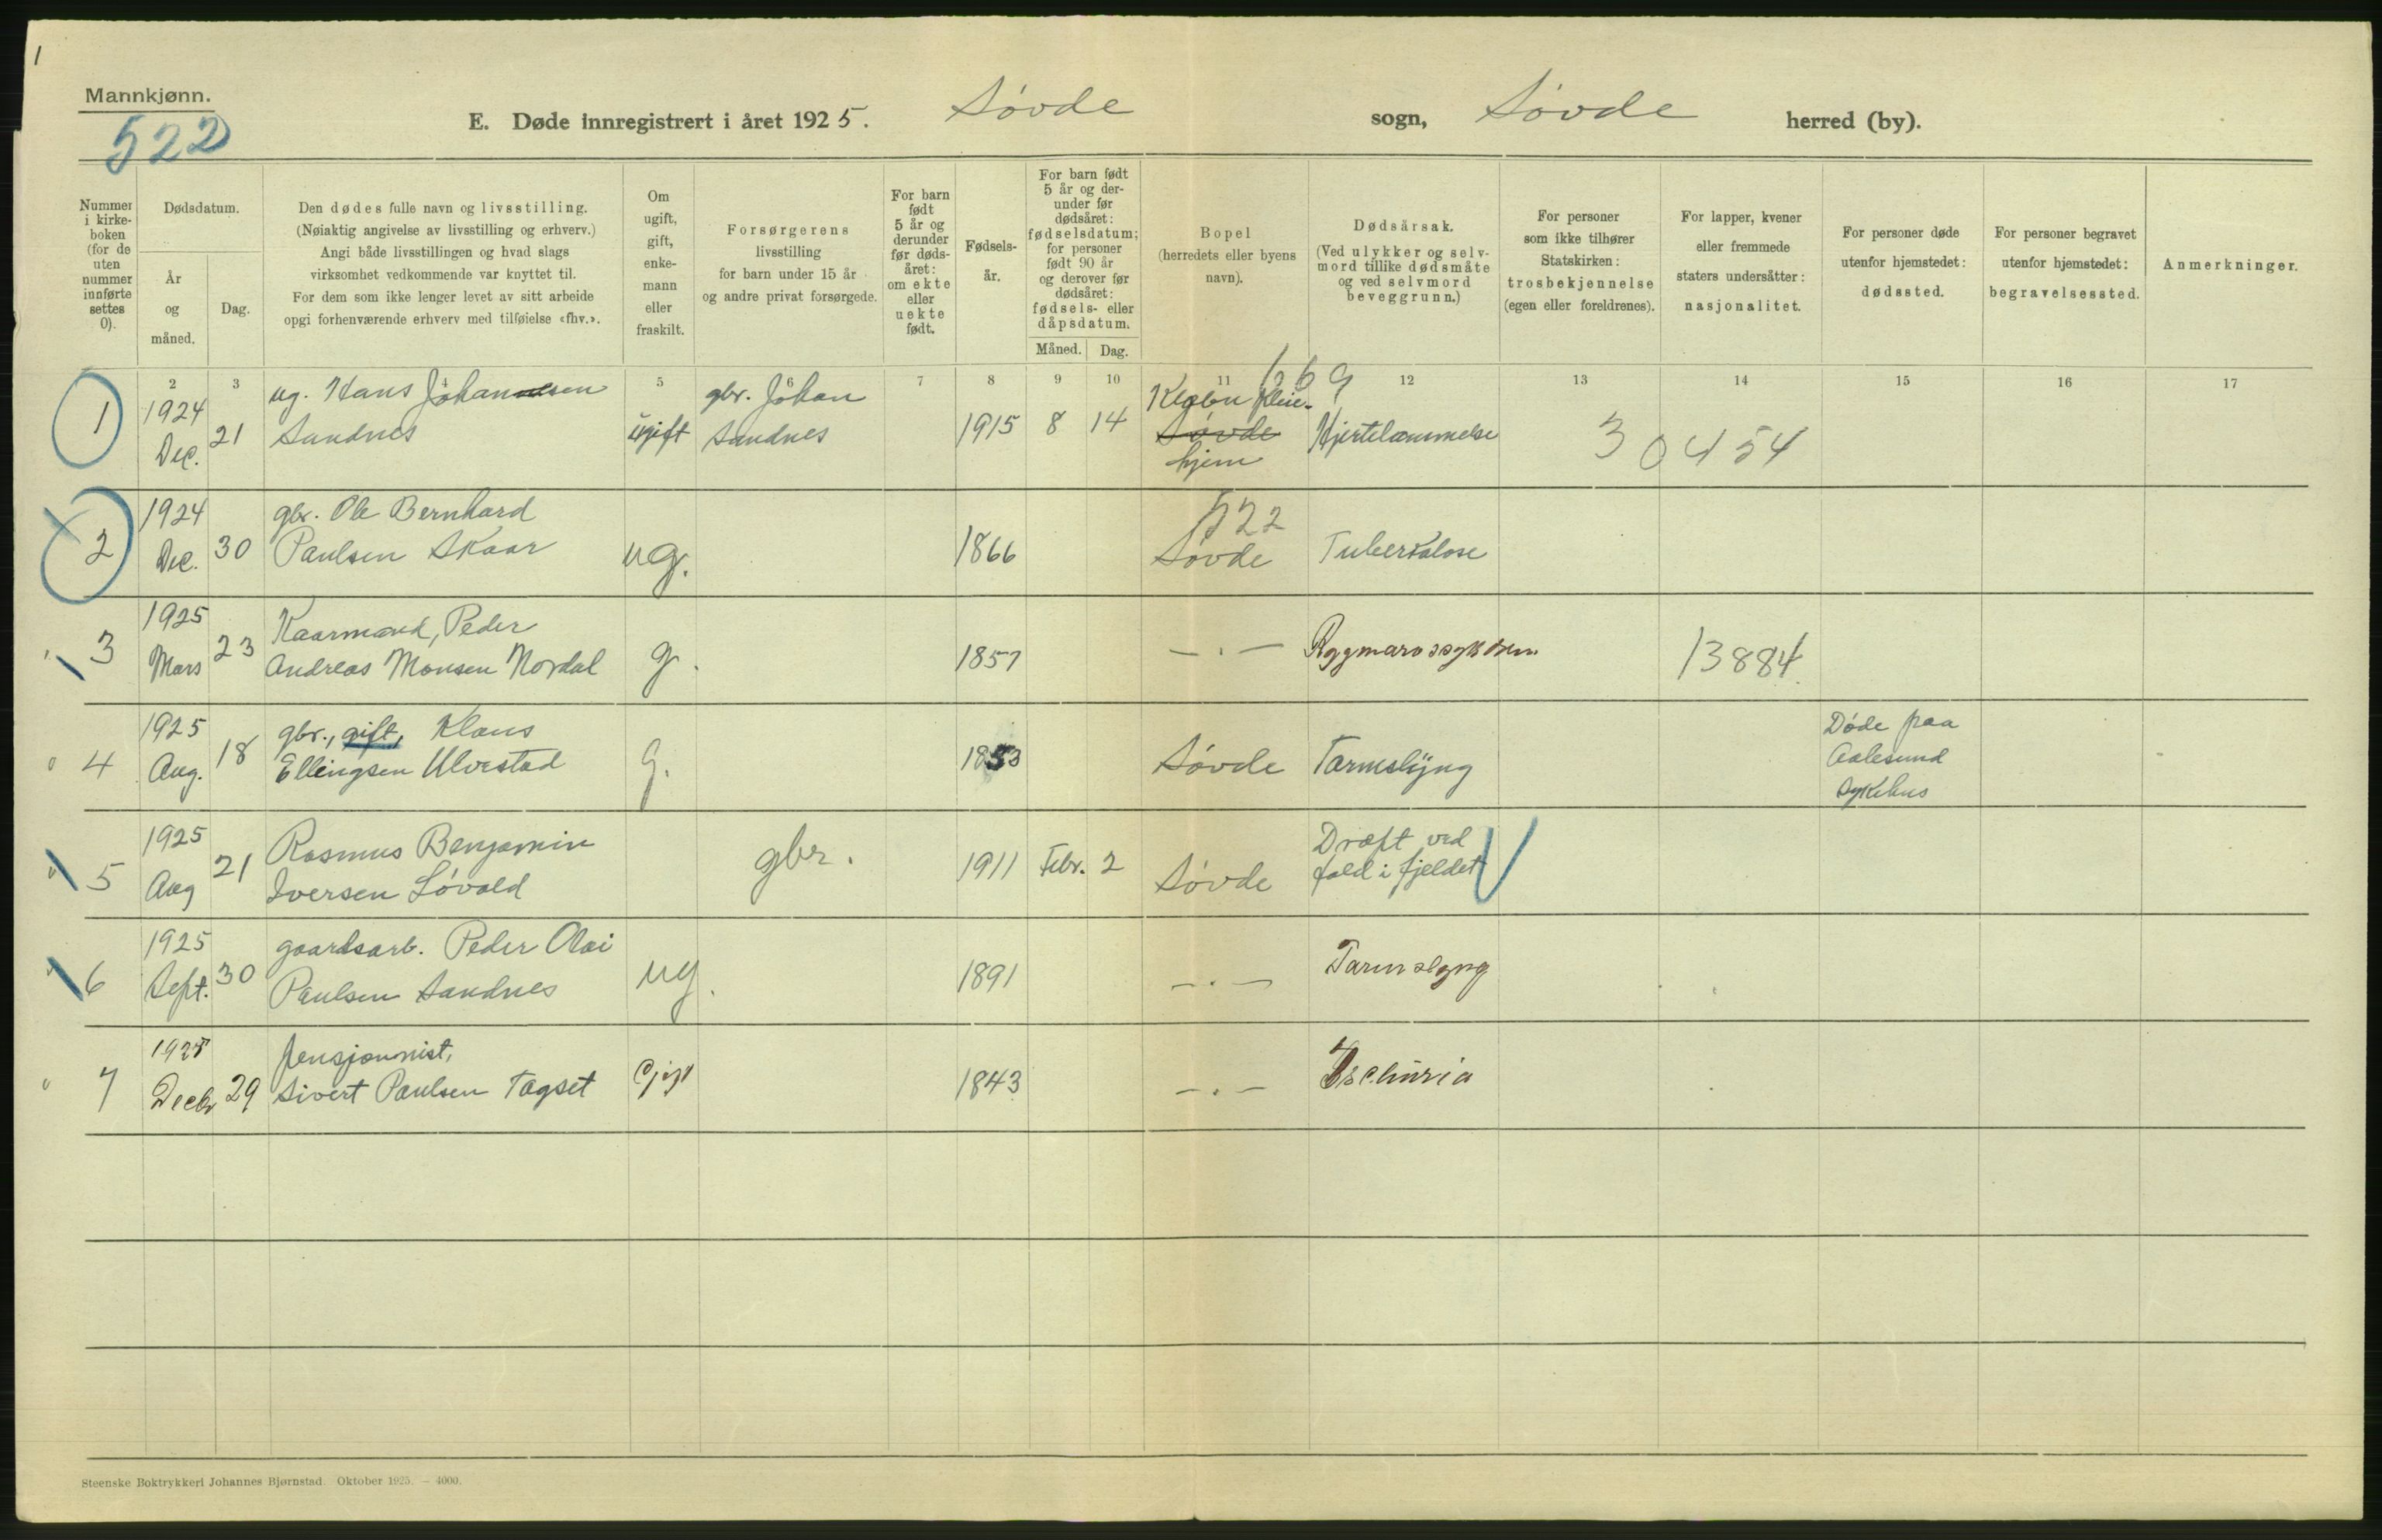 1
Mannkjønn.
522
E. Døde innregistrert i året 1925. Søvde sogn, Søvde herred (by).
Nummer
i kirke-
boken
(for de
uten
nummer
innførte
settes
0).
Dødsdatum.
År
og
måned.
Dag.
Den dødes fulle navn og livsstilling.
(Nøiaktig angivelse av livsstilling og erhverv.)
Angi både livsstillingen og hvad slags
virksomhet vedkommende var knyttet til.
For dem som ikke lenger levet av sitt arbeide
opgi forhenværende erhverv med tilføielse «fhv.».
Om
ugift,
gift,
enke-
mann
eller
fraskilt.
Forsørgerens
livsstilling
for barn under 15 år
og andre privat forsørgede.
For barn
født
5 år og
derunder
før døds-
året:
om ekte
eller
uekte
født.
Fødsels-
år.
For barn født
5 år og der-
under før
dødsåret:
fødselsdatum;
for personer
født 90 år
og derover før
dødsåret:
fødsels- eller
dåpsdatum.
Måned. Dag.
Bopel
(herredets eller byens
navn).
Dødsårsak.
(Ved ulykker og selv-
mord tillike dødsmåte
og ved selvmord
beveggrunn.)
For personer
som ikke tilhører
Statskirken:
trosbekjennelse
(egen eller foreldrenes).
For lapper, kvener
eller fremmede
staters undersåtter:
nasjonalitet.
For personer døde
utenfor hjemstedet:
dødssted.
For personer begravet
utenfor hjemstedet:
begravelsessted.
Anmerkninger.
2 3 4 5 6 7 8 9 10 11 12 13 14 15 16 17
1
1924
Dec.
21
ug. Hans Johansen
Sandnes
ugift
gbr. Johan
Sandnes
1915
8
14
1669
Klæbu pleie-
Søvde
hjem
Hjertelammelse
30454
2
1924
Dec.
30
gbr. Ole Bernhard
Paulsen Skaar
ug.
1866
522
Søvde
Tuberkulose
3
1925
Mars
23
Kaarmand, Peder
Andreas Monsen Nordal
g.
1857
— . —
Rygmarvssygdom.
13884
4
1925
Aug.
18
gbr., gift, Klaus
Ellingsen Ulvestad
g.
1853
Søvde
Tarmslyng
Døde paa
Aalesund
sykehus
5
1925
Aug
21
Rasmus Benjamin
Iversen Løvold
gbr.
1911
Febr.
2
Søvde
Dræpt ved
fald i fjeldet
6
1925
Sept.
30
gaardsarb. Peder Olai
Paulsen Sandnes
ug.
1891
— . —
Tarmslyng
7
1925
Decbr
29
pensjonnist,
Sivert Paulsen Tagset
Gift
1843
— . —
Ischuria
Steenske Boktrykkeri Johannes Bjørnstad. Oktober 1925. — 4000.